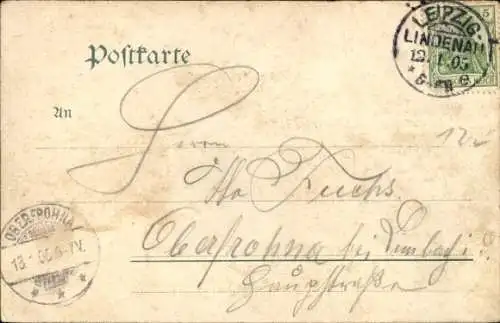 Postkarte
LEIPZIG-
LINDENAU
12. 1. 05
5
An
Herrn
Otto Fuchs.
Oberfrohna bei Limbach i.
Hauptstraße
OBERFROHNA
13. 1. 05